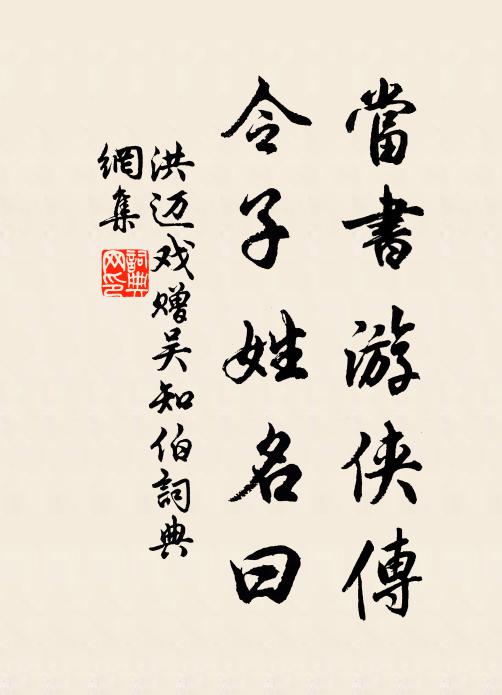 當書游侠傳
令子姓名曰
洪迈戏赠吴知伯詞典
網集
詞典
网印